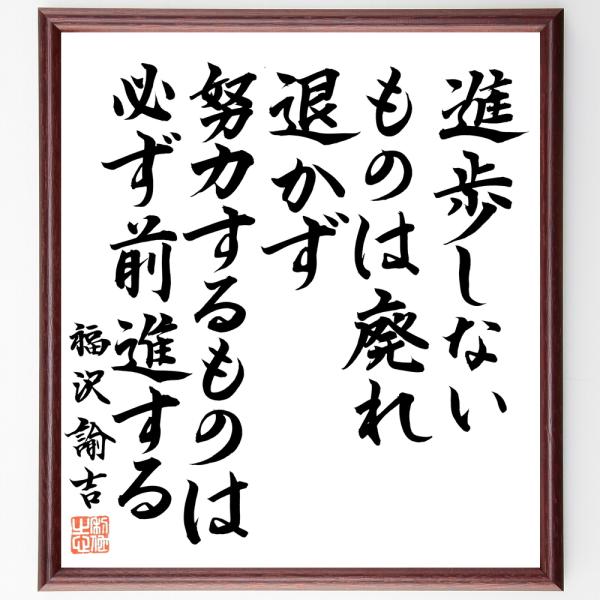 進歩しない
ものは廃れ
退かず
努力するものは
必ず前進する
福沢諭吉